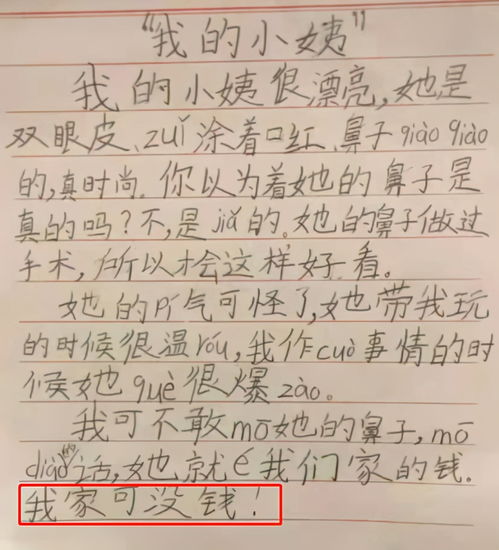 “我的小姨”
我的小姨很漂亮,她是
双眼皮、zuǐ涂着口红、鼻子qiào qiào
的,真时尚.你以为着她的鼻子是
真的吗?不,是jiǎ的。她的鼻子做过
手术,所以才会这样好看。
她的pí气可怪了,她带我玩
的时候很温róu,我作cuò事情的时
候她què很爆zào。
我可不敢mō她的鼻子,mō
diào话,她就e我们家的钱.
我家可没钱!